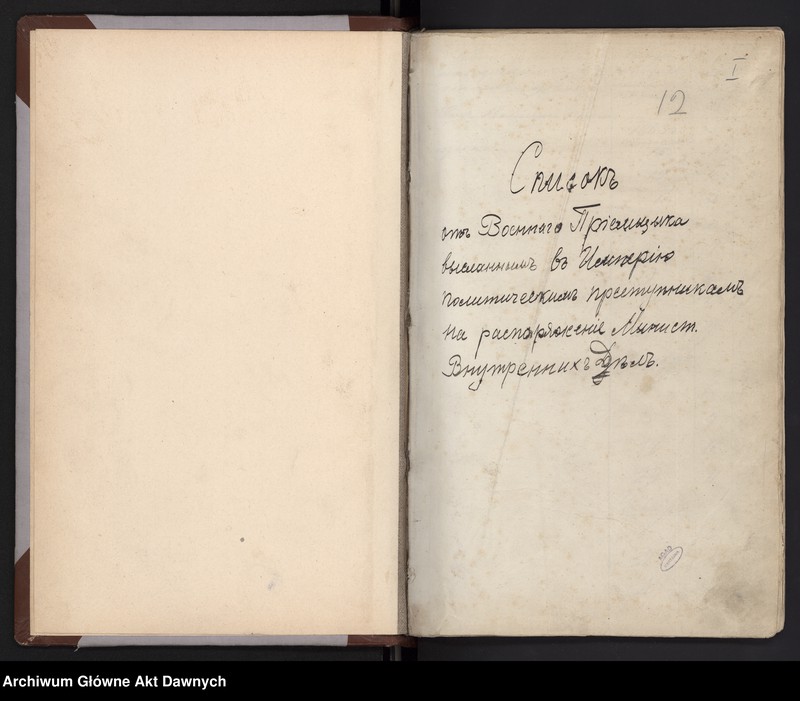 I
12
Списокъ
отъ Военнаго Пріемщика
высланнымъ въ Имперію
политическимъ преступникамъ
на распоряженіе Минист.
Внутреннихъ Дѣлъ.
Archiwum Główne Akt Dawnych